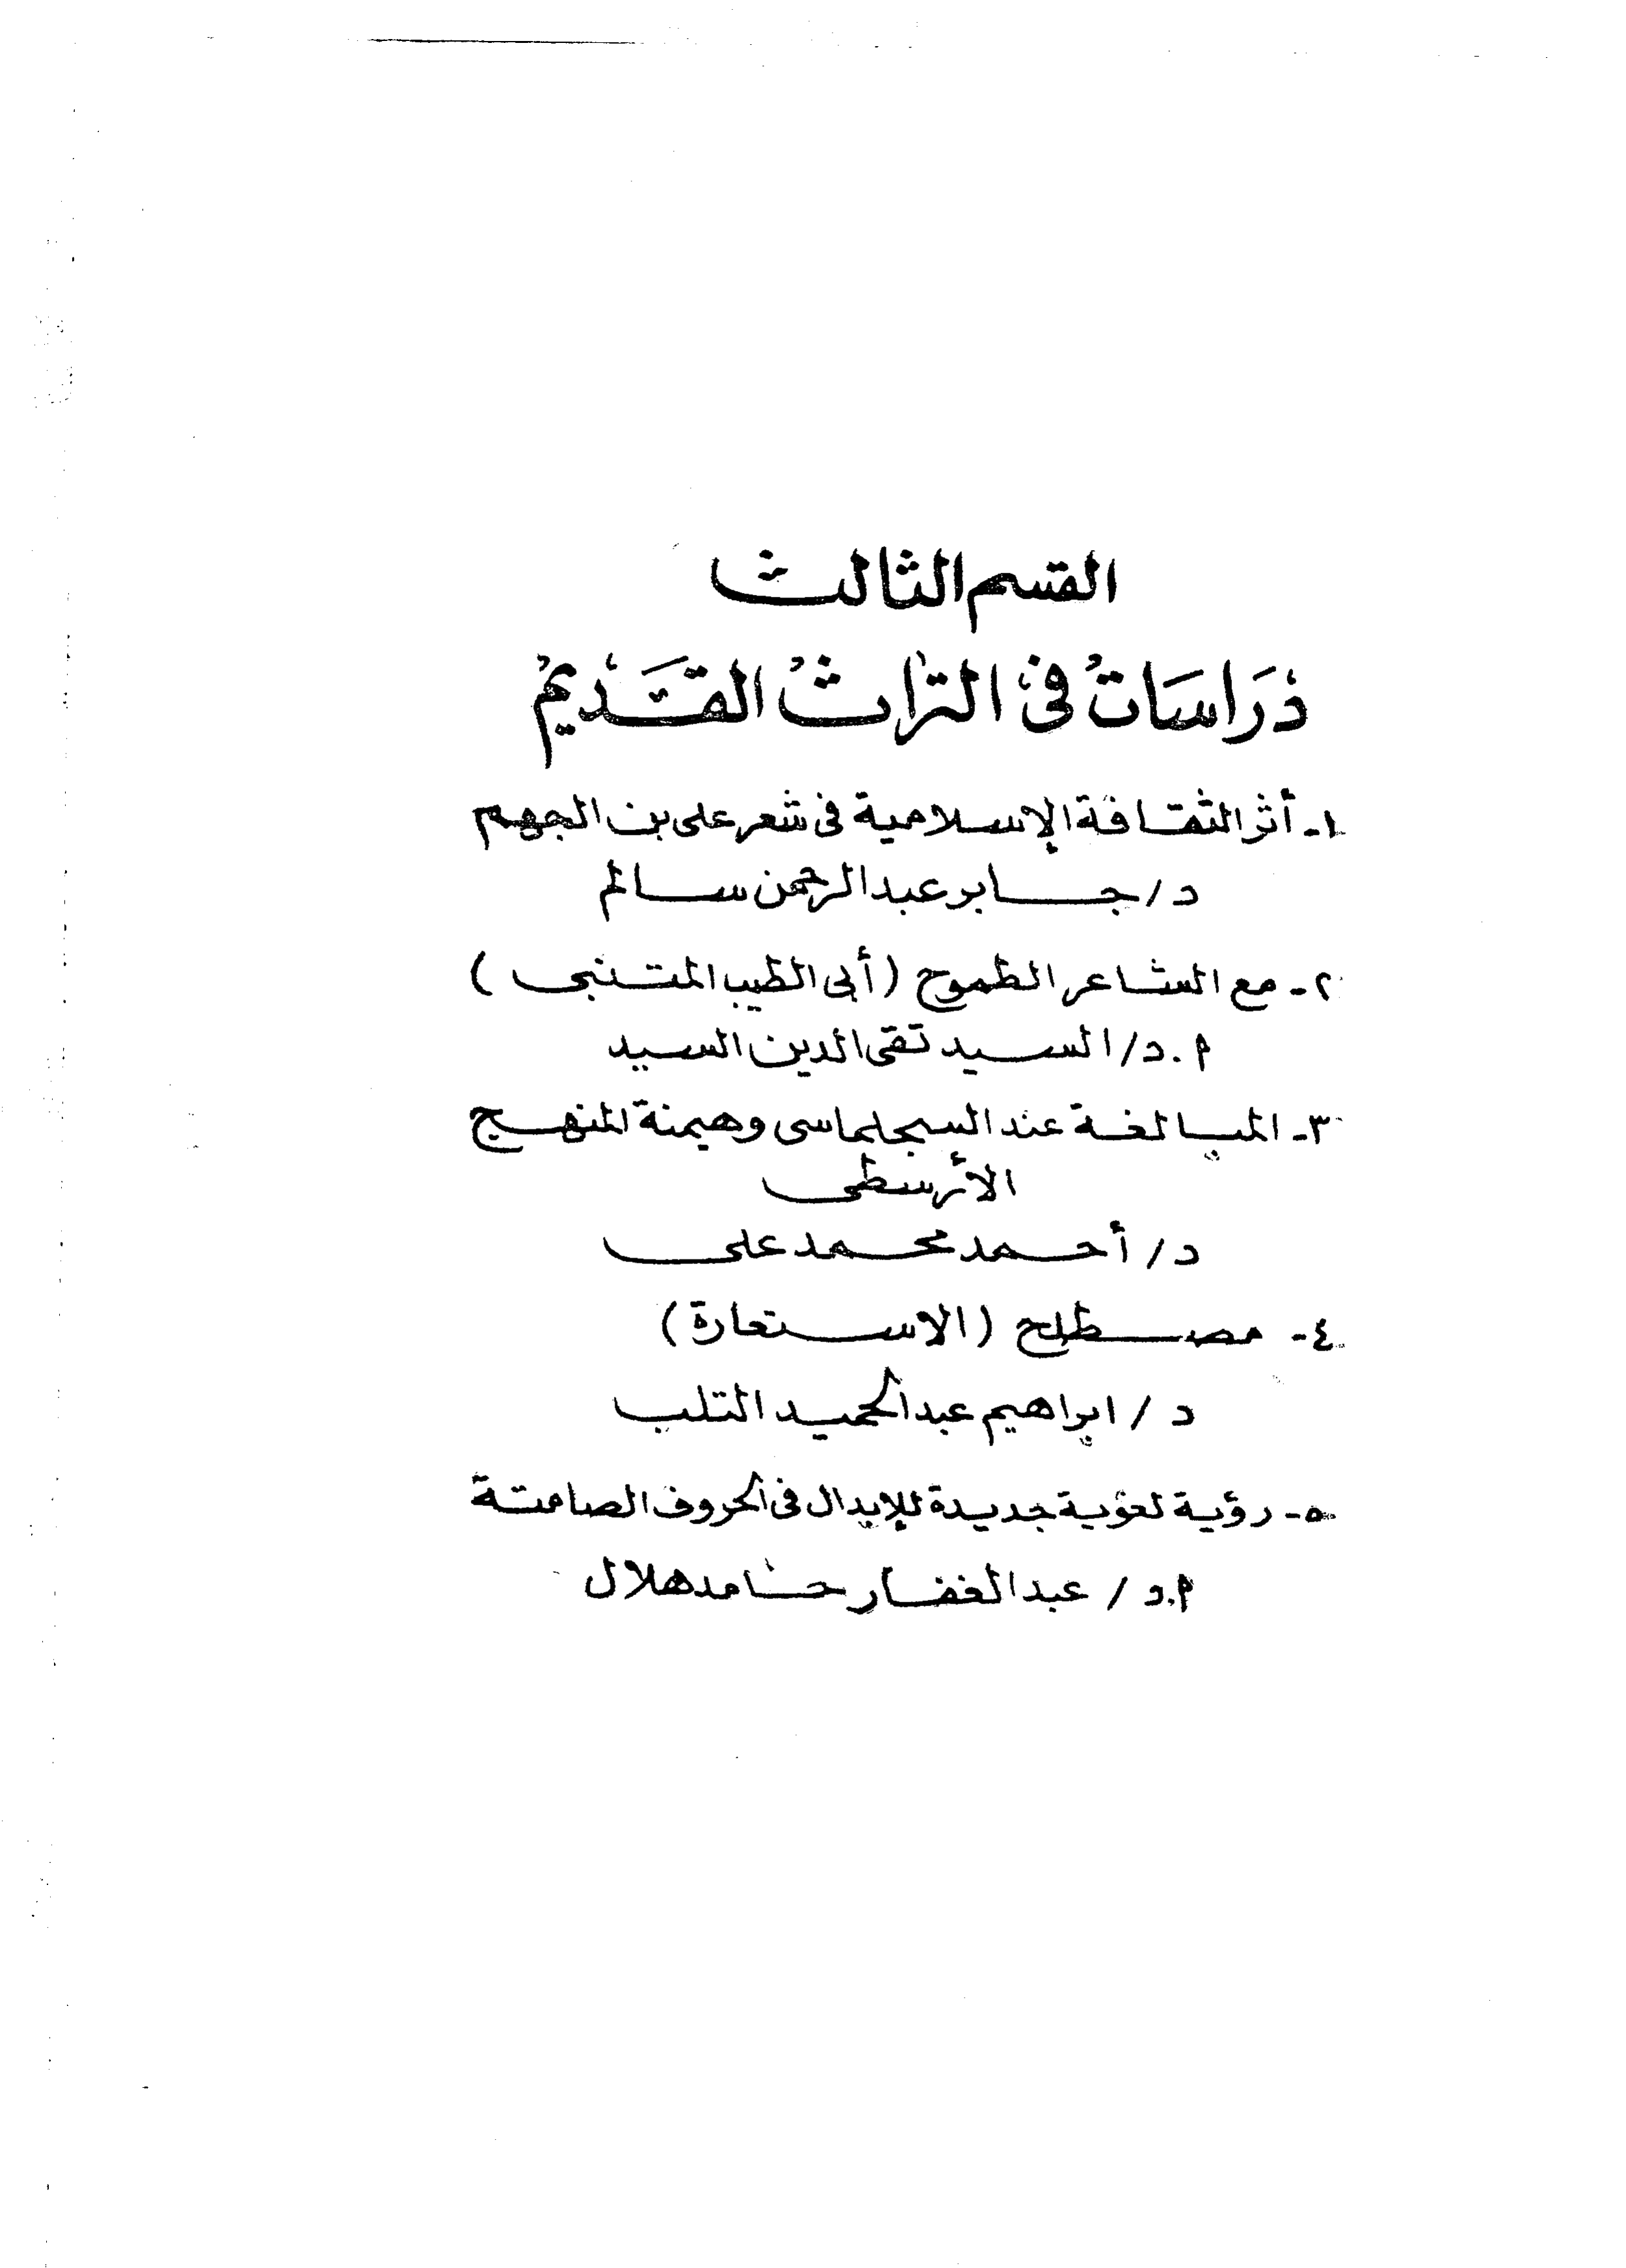 القسم الثالث
دَرَاسَاتُ فى التراثُ القَديمُ
١- أثر الثقافة الإسلامية فى شعر على بن الجهم
د/ جابر عبد الرحمن سالم
٢- مع الشاعر الطموح (أبى الطيب المتنبى)
ا.د/ السيد تقى الدين السيد
٣- المبالغة عند السجلماسى وهيمنة المنهج
الأرسطى
د/ أحمد محمد على
٤- مصطلح (الاستعارة)
د/ ابراهيم عبد الحميد التلب
٥- رؤية لغوية جديدة للإبدال فى الحروف الصامتة
ا.د/ عبد الغفار حامد هلال